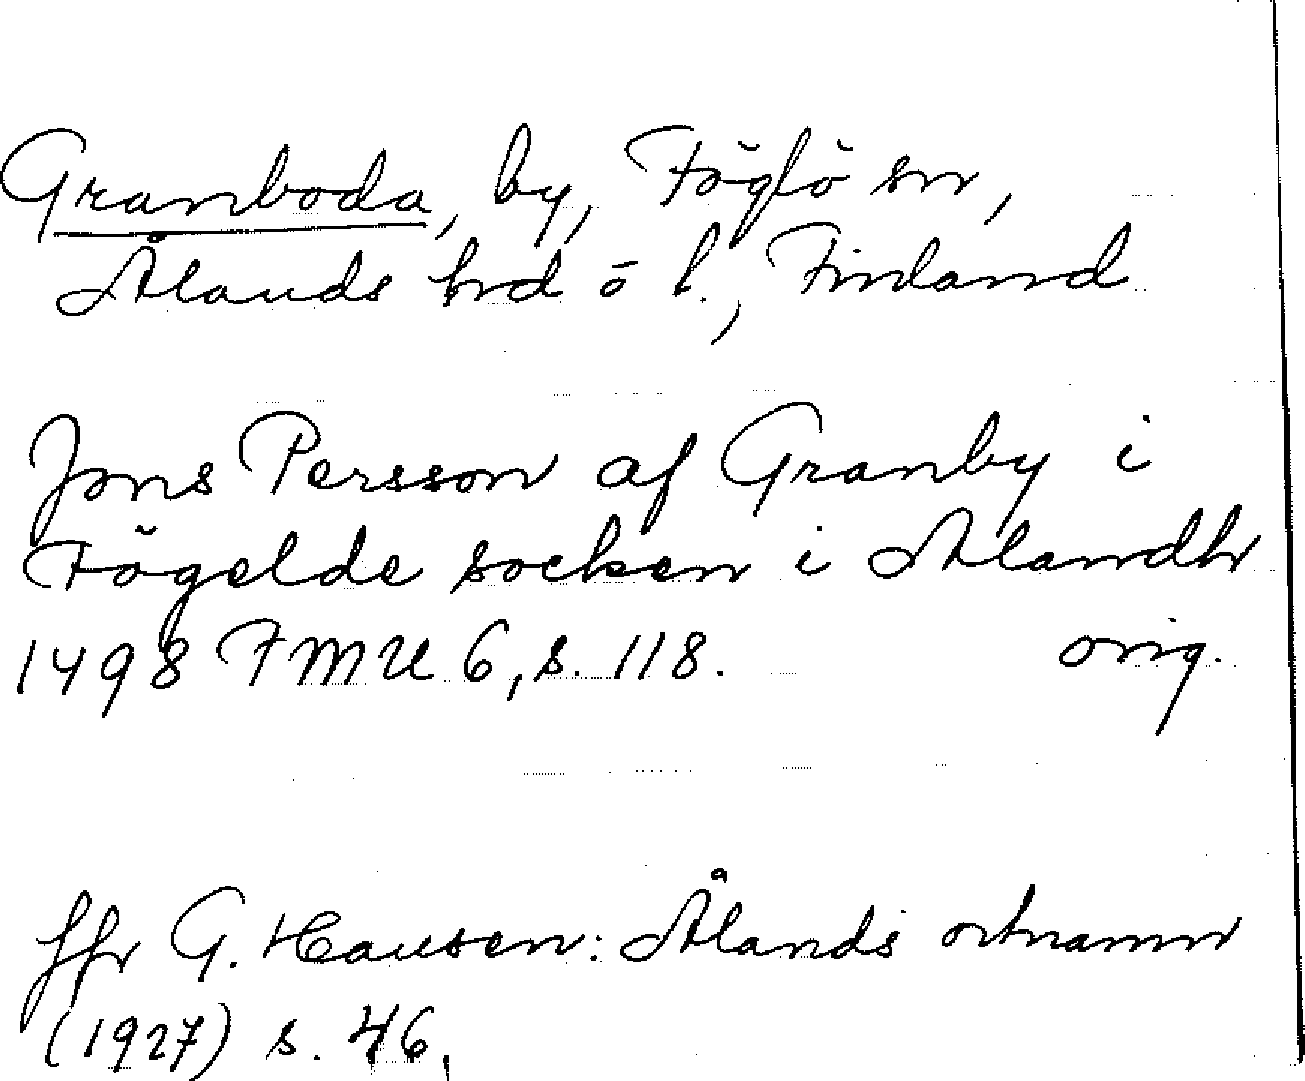 Granboda, by, Föglö sn,
Ålands hrd ö l., Finland
Jons Persson af Granby i
Fögelde socken i Alandh
1498 FMU 6, s. 118. orig.
Jfr G. Hausen: Ålands ortnamn
(1927) s. 46.